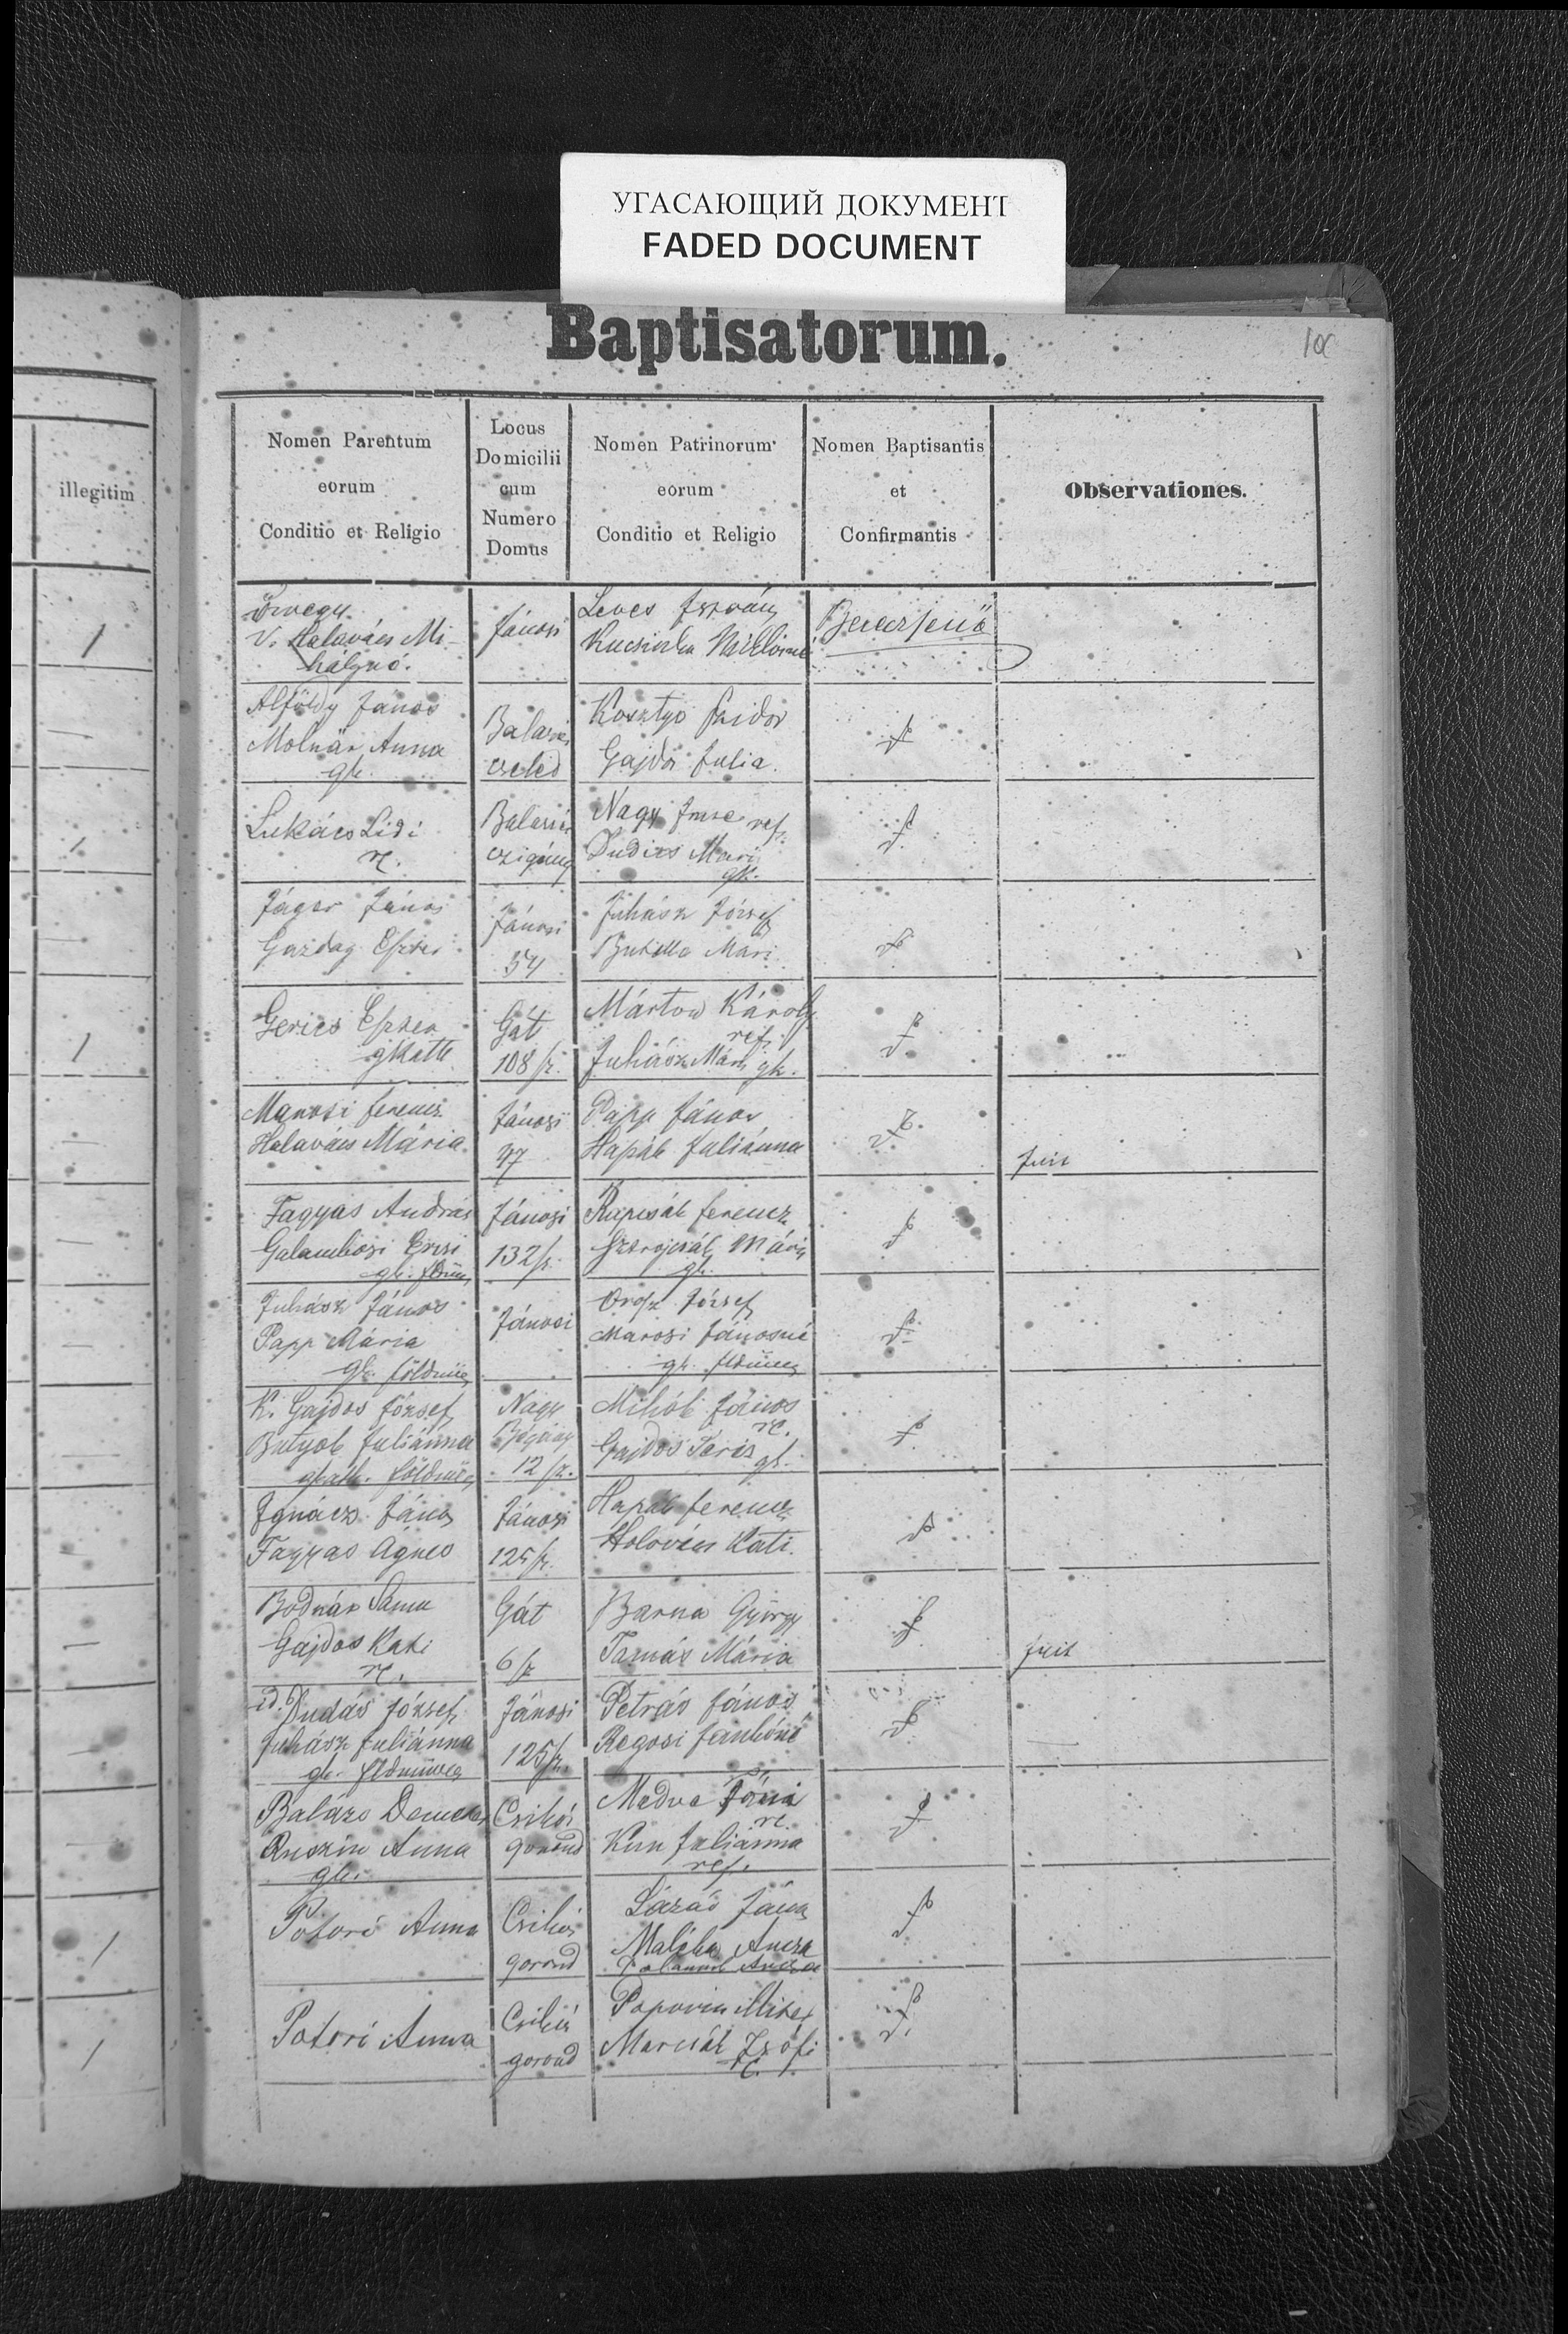 УГАСАЮЩИЙ ДОКУМЕНТ
FADED DOCUMENT
Baptisatorum.
100
illegitim
Nomen Parentum
eorum
Conditio et Religio
Locus
Domicilii
cum
Numero
Domus
Nomen Patrinorum
eorum
Conditio et Religio
Nomen Baptisantis
et
Confirmantis
Observationes.
Özvegy
V. Halavács Mi-
hályné.
Jánosi
Leves István
Alföldy János
Molnár Anna
gk.
Balazsi
cseléd
Kosztyo Izidor
Gajdos Julia.
Lukács Lidi
rc.
Balazsi
czigány
Nagy Imre ref.
Dudics Mari
gk.
Jáger János
Gazdag Eszter
Jánosi
34
Juhász József
Butella Mari
Gerics Eszter
gkath
Gát
108 sz.
Márton Károly
ref.
Juhász Mári gk.
Marosi Ferencz
Halavács Mária.
Jánosi
97
Papp János
Hapák Juliánna
fuit
Fagyas András
Galambosi Erzsi
gk. fldműv
Jánosi
132 sz.
Rapcsák Ferencz
Mária
gk.
Juhász János
Papp Mária
gk. földműv
Jánosi
Orosz József
Marosi Jánosné
gk. fldműves
K. Gajdos József
Butyok Juliánna
gkath. földműv
Nagy
Bégány
12 sz.
Mihók János
rc.
Gajdos Teriz gk.
Ignácz János
Fagyas Ágnes
Jánosi
125 sz.
Hapák Ferencz
Holovács Kati.
Bodnár Samu
Gajdos Kati
rc.
Gát
6 sz
Barna György
Tamás Mária
fuit
id. Dudás József
Juhász Juliánna
gk. fldműves
Jánosi
125 sz.
Petrás János
Regosi Jankóné
Balázs Demeter
Ruszin Anna
gk.
Csikós
gorond
Medve Jónás
rc.
Kun Juliánna
ref.
Potoré Anna
Csikós
gorond
Lázár János
Maliha Ancza
Ancza
Potoré Anna
Csikós
gorond
Popovics Mihály
Marcsák Zsófi
rc.